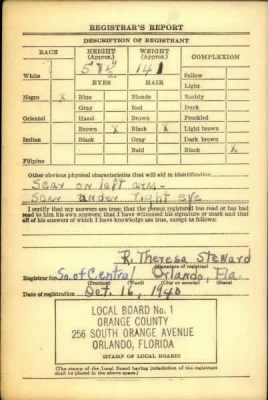 REGISTRAR'S REPORT
DESCRIPTION OF REGISTRANT
RACE HEIGHT (Approx.) WEIGHT (Approx.) COMPLEXION
5 7½ 141
White Sallow
EYES HAIR Light
Negro X Blue Blonde Ruddy
Gray Red Dark
Oriental Hazel Brown Freckled
Brown X Black X Light brown
Indian Black Gray Dark brown
Bald Black X
Filipino
Other obvious physical characteristics that will aid in identification
Scar on left arm-
Scar under right eye
I certify that my answers are true; that the person registered has read or has had
read to him his own answers; that I have witnessed his signature or mark and that
all of his answers of which I have knowledge are true, except as follows:
R. Theresa Steward
(Signature of registrar)
Registrar for Central Orlando, Fla.
(Precinct) (Ward) (City or county) (State)
Date of registration Oct. 16, 1940
LOCAL BOARD No. 1
ORANGE COUNTY
256 SOUTH ORANGE AVENUE
ORLANDO, FLORIDA
(STAMP OF LOCAL BOARD)
(The stamp of the Local Board having jurisdiction of the registrant
shall be placed in the above space.)